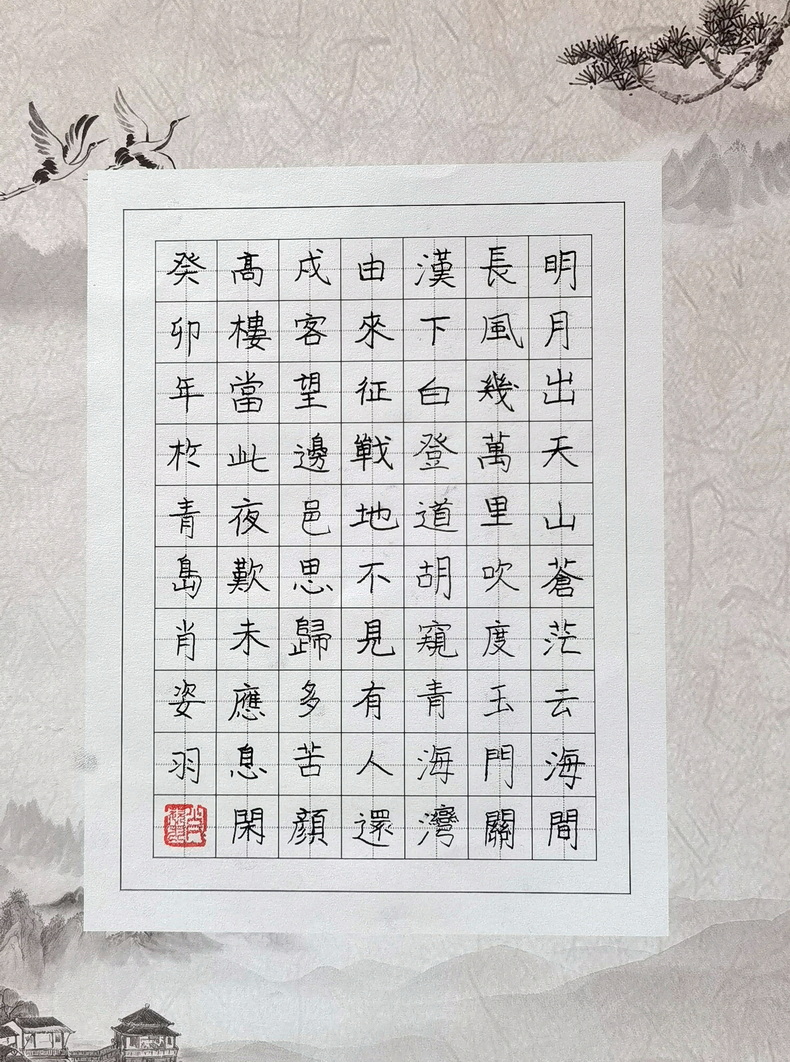 明月出天山蒼茫云海間
長風幾萬里吹度玉門關
漢下白登道胡窺青海灣
由來征戰地不見有人還
戍客望邊邑思歸多苦顏
高樓當此夜歎未應息閑
癸卯年於青島肖姿羽